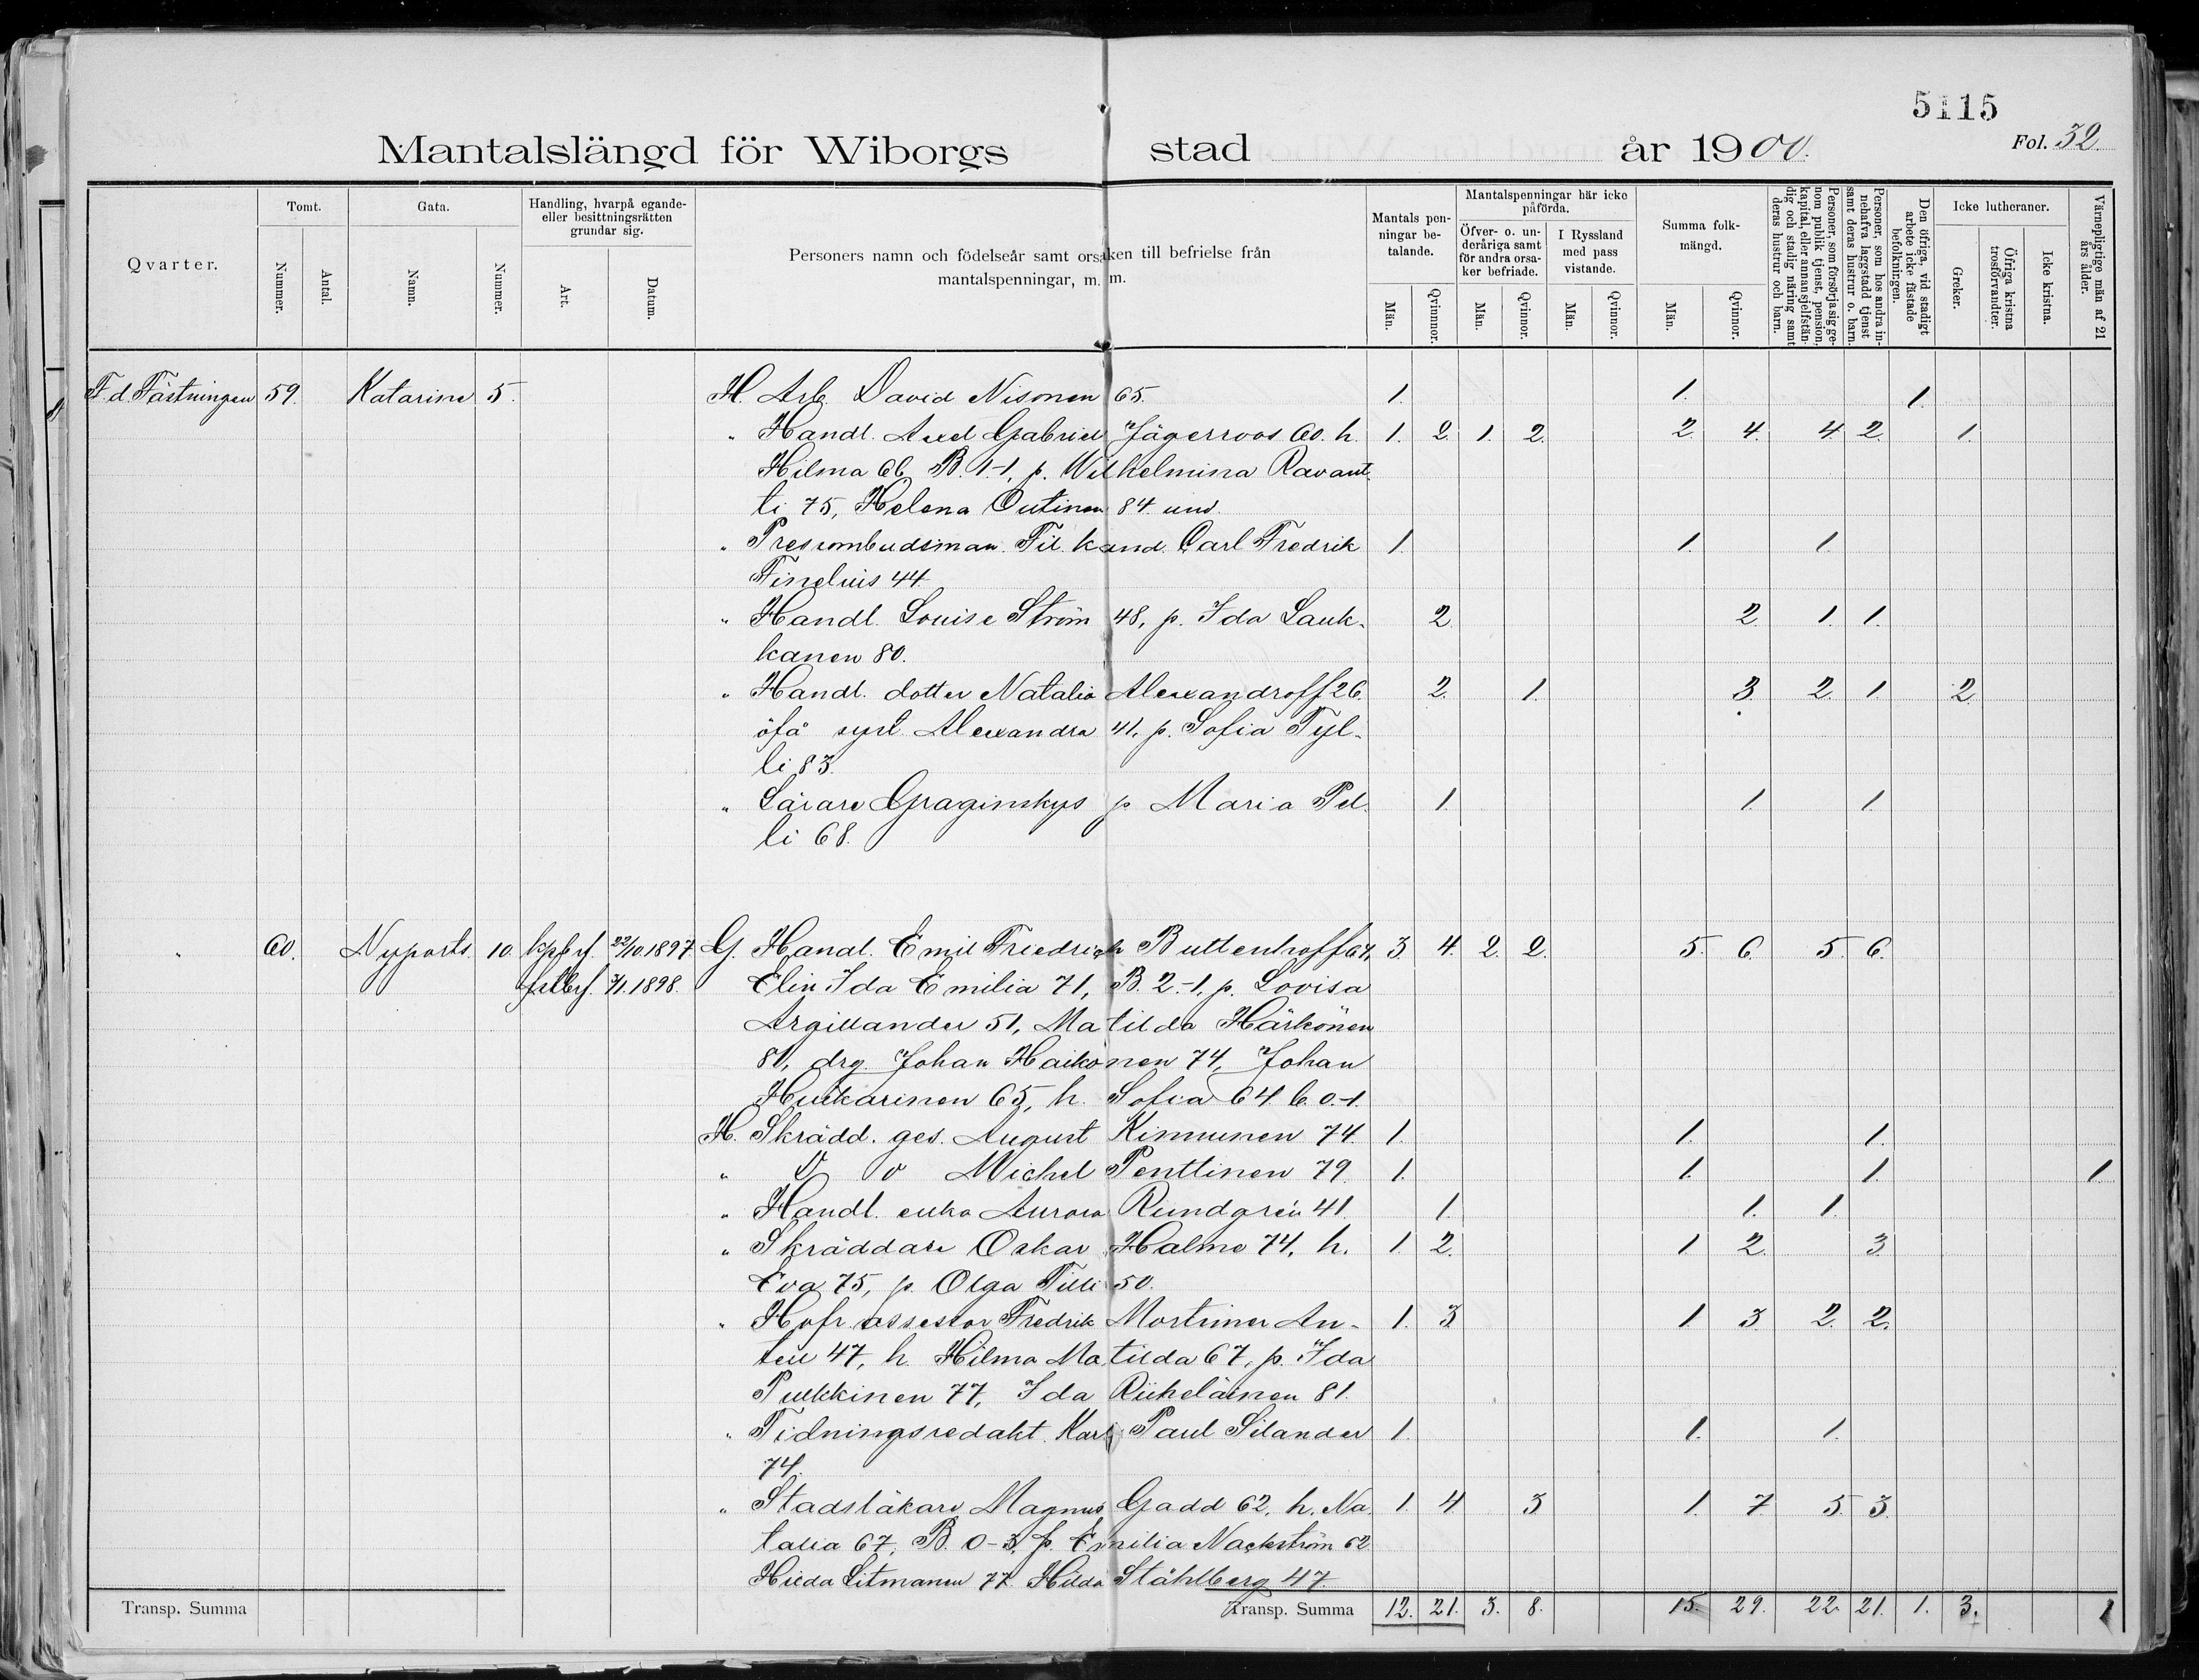 5115
Mantalslängd för Wiborgs stad år 1900.
Fol. 32
Qvarter.
Tomt.
Nummer.
Antal.
Gata.
Namn.
Nummer.
Handling, hvarpå egande-
eller besittningsrätten
grundar sig.
Art.
Datum.
Personers namn och födelseår samt orsaken till befrielse från
mantalspenningar, m. m.
Mantals pen-
ningar be-
talande.
Män.
Qvinnor.
Mantalspenningar här icke
påförda.
Öfver- o. un-
deråriga samt
för andra orsa-
ker befriade.
Män.
Qvinnor.
I Ryssland
med pass
vistande.
Män.
Qvinnor.
Summa folk-
mängd.
Män.
Qvinnor.
Personer, som försörja sig ge-
nom publik tjenst, pension,
kapital, eller annan sjelfstän-
dig och stadig näring samt
deras hustrur och barn.
Personer, som hos andra in-
nehafva laggstadd tjenst
samt deras hustrur o. barn.
Den öfriga, vid stadigt
arbete icke fästade
befolkningen.
Icke lutheraner.
Greker.
Öfriga kristna
trosförvandter.
Icke kristna.
Värnepligtige män af 21
års ålder.
F. d. Fästningen 59. Katarine 5. H. Arb. David Nisonen 65. 1. 1. 1.
" Handl. Axel Gabriel Jägerroos 60. h. 1. 2. 1. 2. 2 4. 4 2. 1.
Hilma 66, B. 1-1, p. Wilhelmina Ravant-
ti 75, Helena Outinen 84. und.
" Presombudsman. Fil. kand. Carl Fredrik 1. 1. 1.
Finelius 44.
" Handl. Louise Ström 48, p. Ida Lauk- 2 2. 1. 1.
kanen 80.
" Handl. dotter Natalia Alexandroff 26. 2. 1. 3 2. 1. 2
öfå syst. Alexandra 41, p. Sofia Tyl-
li 83.
" Lärare Graginskys p. Maria Pel- 1. 1. 1.
li 68.
" 60. Nyports 10. kpbrf. 22/10.1897 G. Handl. Emil Friedrich Buttenhoff 64, 3. 4. 2. 2. 5. 6. 5. 6.
fstbrf. 3/1.1898. Elin Ida Emilia 71, B. 2-1, p. Lovisa
Argillander 51, Matilda Härkönen
81, drg. Johan Haikonen 74, Johan
Huikarinen 65, h. Sofia 64 b. 0-1.
H. Skrädd. ges. August Kinnunen 74. 1. 1. 1.
" D o Michel Penttinen 79. 1. 1. 1. 1
" Handl. enka Aurora Rundgrén 41. 1. 1. 1.
" Skräddare Oskar Halme 74, h. 1. 2. 1 2. 3.
Eva 75, p. Olga Tilli 50.
" Hofr. assessor Fredrik Mortimer An- 1. 3. 1. 3 2. 2.
tell 47, h. Hilma Matilda 67, p. Ida
Pulkkinen 77, Ida Riiheläinen 81.
" Tidningsredakt. Karl Paul Silander 1. 1. 1.
74.
" Stadsläkare Magnus Gadd 62, h. Na- 1. 4. 3. 1. 7. 5. 3.
talia 67, B. 0-3, p. Emilia Nackström 62
Hilda Litmanen 77. Hilda Ståhlberg 47.
Transp. Summa Transp. Summa 12. 21. 3. 8. 15. 29. 22. 21. 1. 3. 1